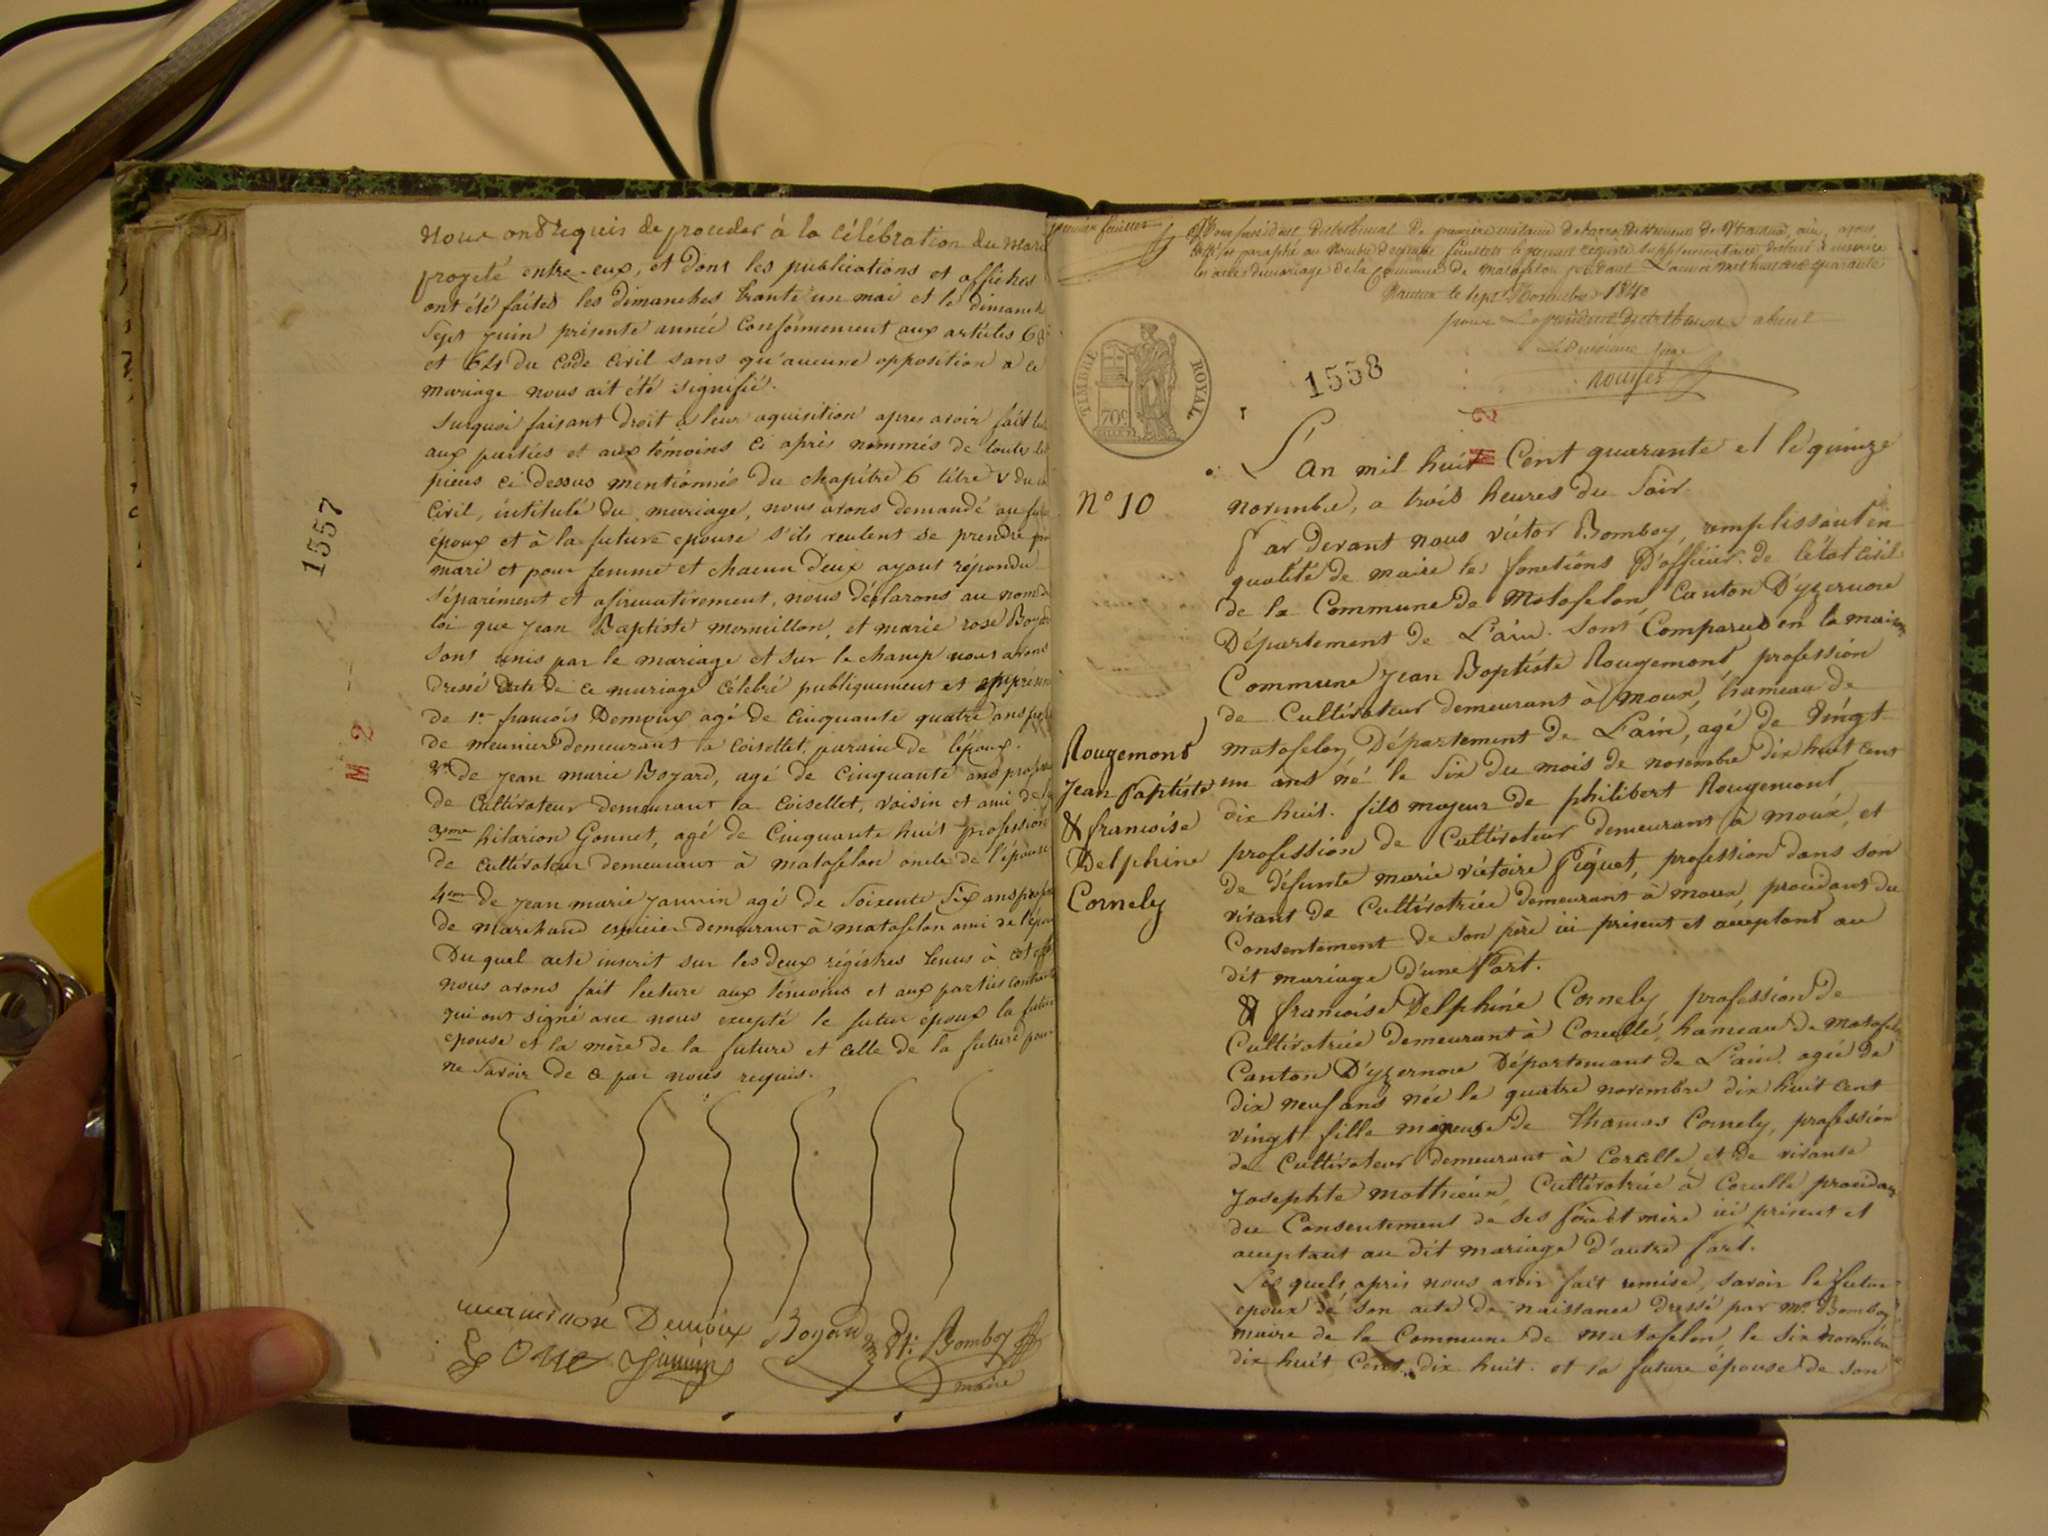 nous ont requis de proceder à la célébration du mari
projeté entre-eux, et dont les publications et affiches
ont été faites les dimanches trante un mai et le dimanch
sept juin présente année conformement aux articles 63
et 64 du code civil sans qu'aucune opposition a ce
mariage nous ait été signifié.
Surquoi faisant droit à leur aquisition apres avoir fait
aux parties et aux témoins ci après nommés de toutes
pieces ci dessus mentionnés du chapitre 6 titre v du
civil, intitulé du mariage, nous avons demandé au fu
epoux et à la future epouse s'ils veulent se prendre
mari et pour femme et chacun d'eux ayant répondu
séparément et afirmativement, nous déclarons au nom de
loi que jean Baptiste mermillon, et marie rose Boyar
sont unis par le mariage et sur le champ nous avons
dressé acte de ce mariage célébré publiquement et en présen
de 1er francois Demoux agé de cinquante quatre ans
de meunier demeurant la coisellet, parain de l'époux.
2me de jean marie Boyard, agé de cinquante ans profes
de cultivateur demeurant la coisellet, voisin et ami de
3me hilarion Gonnet, agé de cinquante huit profession
de cultivateur demeurant à matafelon oncle de l'épouse
4eme de jean marie janvin agé de soixente six ans profe
de marchand demeurant à matafelon ami de l'épou
Du quel acte inscrit sur les deux régistres tenus à cet
nous avons fait lecture aux témoins et aux parties contract
qui ont signé avec nous excepté le futur epoux la future
epouse et la mère de la future et celle de la future pour
ne savoir de ce par nous requis.
Demoux Boyard Bomboy
janvin
maire
1557
M 2
premier feuillet
Nous president du tribunal de premiere instance de l'arrondissement de Nantua, ain, avons
coté et paraphé au nombre de feuillets le present registre supplementaire destiné à inscrire
les actes de mariage de la Commune de matafelon pendant L'année mil huit cent quarante
Nantua le sept Novembre 1840
pour Le président du tribunal absent
juge
TIMBRE ROYAL
70c
1558
2
M
L'an mil huit Cent quarante et le quinze
N° 10
novembre, a trois heures du Soir.
Par devant nous victor Bomboy, remplissant en
qualité de maire les fonctions D'officier de l'état civil
de la Commune de Matafelon Canton D'yzernore
Département de L'ain. Sont Comparus en la maison
Commune jean Baptiste Rougemont profession
de Cultivateur demeurant à moux, hameau de
matafelon Département de L'ain, agé de vingt
un ans né le Six du mois de novembre dix huit cent
dix huit. fils majeur de philibert Rougemont
profession de Cultivateur demeurant à moux, et
de défunte marie victoire Piquet, profession dans son
vivant de Cultivatrice demeurant à moux, procédant du
Consentement de son père ici présent et acceptant au
dit mariage d'une Part.
Rougemont
jean Baptiste
& francoise
Delphine
Cornely
& francoise Delphine Cornely profession de
Cultivatrice demeurant à Corcelle, hameau de matafelon
Canton D'yzernore Département de L'ain. agée de
dix neuf ans née le quatre novembre dix huit cent
vingt fille mineure de thomas Cornely, profession
de Cultivateur demeurant à Corcelle et de vivante
Josephte mathieux, Cultivatrice à Corcelle procédan
du Consentement de ses père et mère ici présent et
acceptant au dit mariage d'autre part.
Les quels, après nous avoir fait remise, savoir le futur
epoux de son acte de naissance dressé par Mr Bomboy
maire de la Commune de matafelon, le six novembre
dix huit Cent dix huit. et la future épouse de son